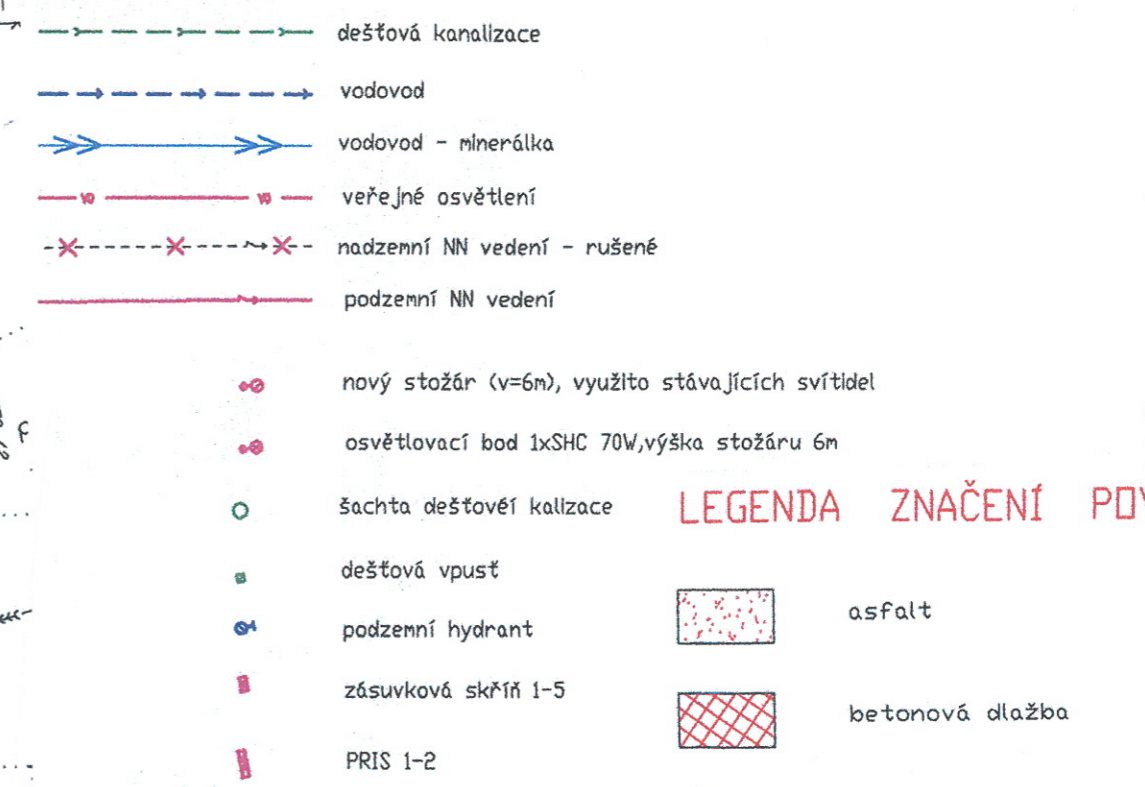 dešťová kanalizace
vodovod
vodovod - minerálka
veřejné osvětlení
nadzemní NN vedení - rušené
podzemní NN vedení
nový stožár (v=6m), využito stávajících svítidel
osvětlovací bod 1xSHC 70W,výška stožáru 6m
šachta dešťovéí kalizace
dešťová vpusť
podzemní hydrant
zásuvková skříň 1-5
PRIS 1-2
LEGENDA ZNAČENÍ POV
asfalt
betonová dlažba